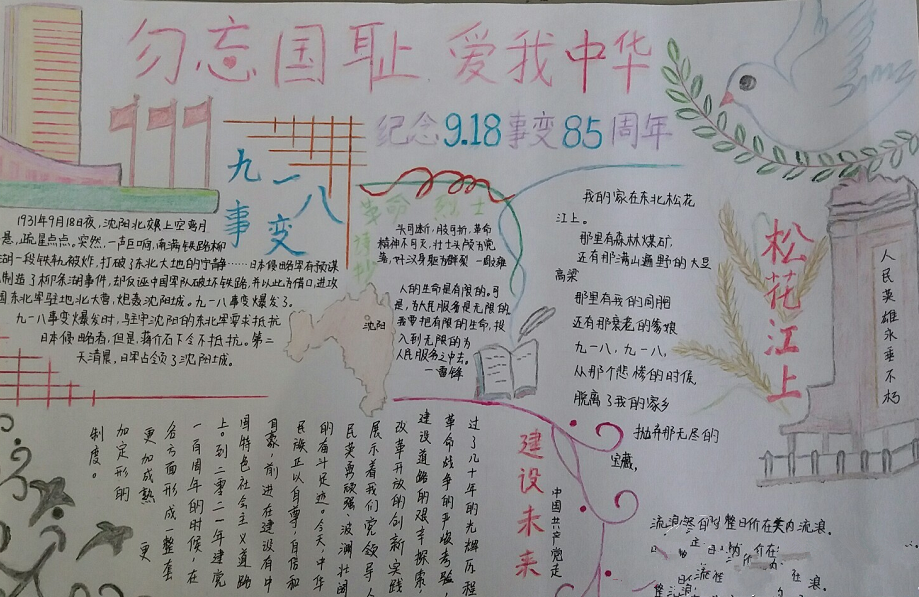 勿忘国耻 爱我中华
纪念9.18事变85周年
九一八
事变
1931年9月18日夜，沈阳北郊上空弯月
悬，疏星点点。突然，一声巨响，南满铁路柳
湖一段铁轨被炸，打破了东北大地的宁静……日本侵略军有预谋
制造了柳条湖事件，却反诬中国军队破坏铁路，并以此为借口，进攻
国东北军驻地北大营，炮轰沈阳城。九一八事变爆发了。
九一八事变爆发时，驻守沈阳的东北军要求抵抗
日本侵略者，但是，蒋介石下令不抵抗。第二
天清晨，日军占领了沈阳城。
沈阳
革命烈士
诗抄
头可断，肢可折，革命
精神不可灭，壮士头颅为党
落，好汉身躯为群裂
人的生命是有限的。可
是，为人民服务是无限的
我要把有限的生命，投
入到无限的为
人民服务之中去。
—雷锋
我的家在东北松花
江上。
那里有森林煤矿，
还有那满山遍野的大豆
高粱
那里有我的同胞
还有那衰老的爹娘
九一八，九一八，
从那个悲惨的时候，
脱离了我的家乡
抛弃那无尽的
宝藏，
流浪
整日价在关内流浪。
松花江上
人民英雄永垂不朽
建设未来
中国共产党走
过了几十年的光辉历程
革命战争的严峻考验，
建设道路的艰辛探索，
改革开放的创新实践
展示着我们党领导人
民英勇顽强、波澜壮阔
的奋斗足迹。今天，中华
民族正以自尊、自信和
自豪，前进在建设有中
国特色社会主义道路
上。到二零二一年建党
一百周年的时候，在
各方面形成一整套
更加成熟 更
加定形的
制度。